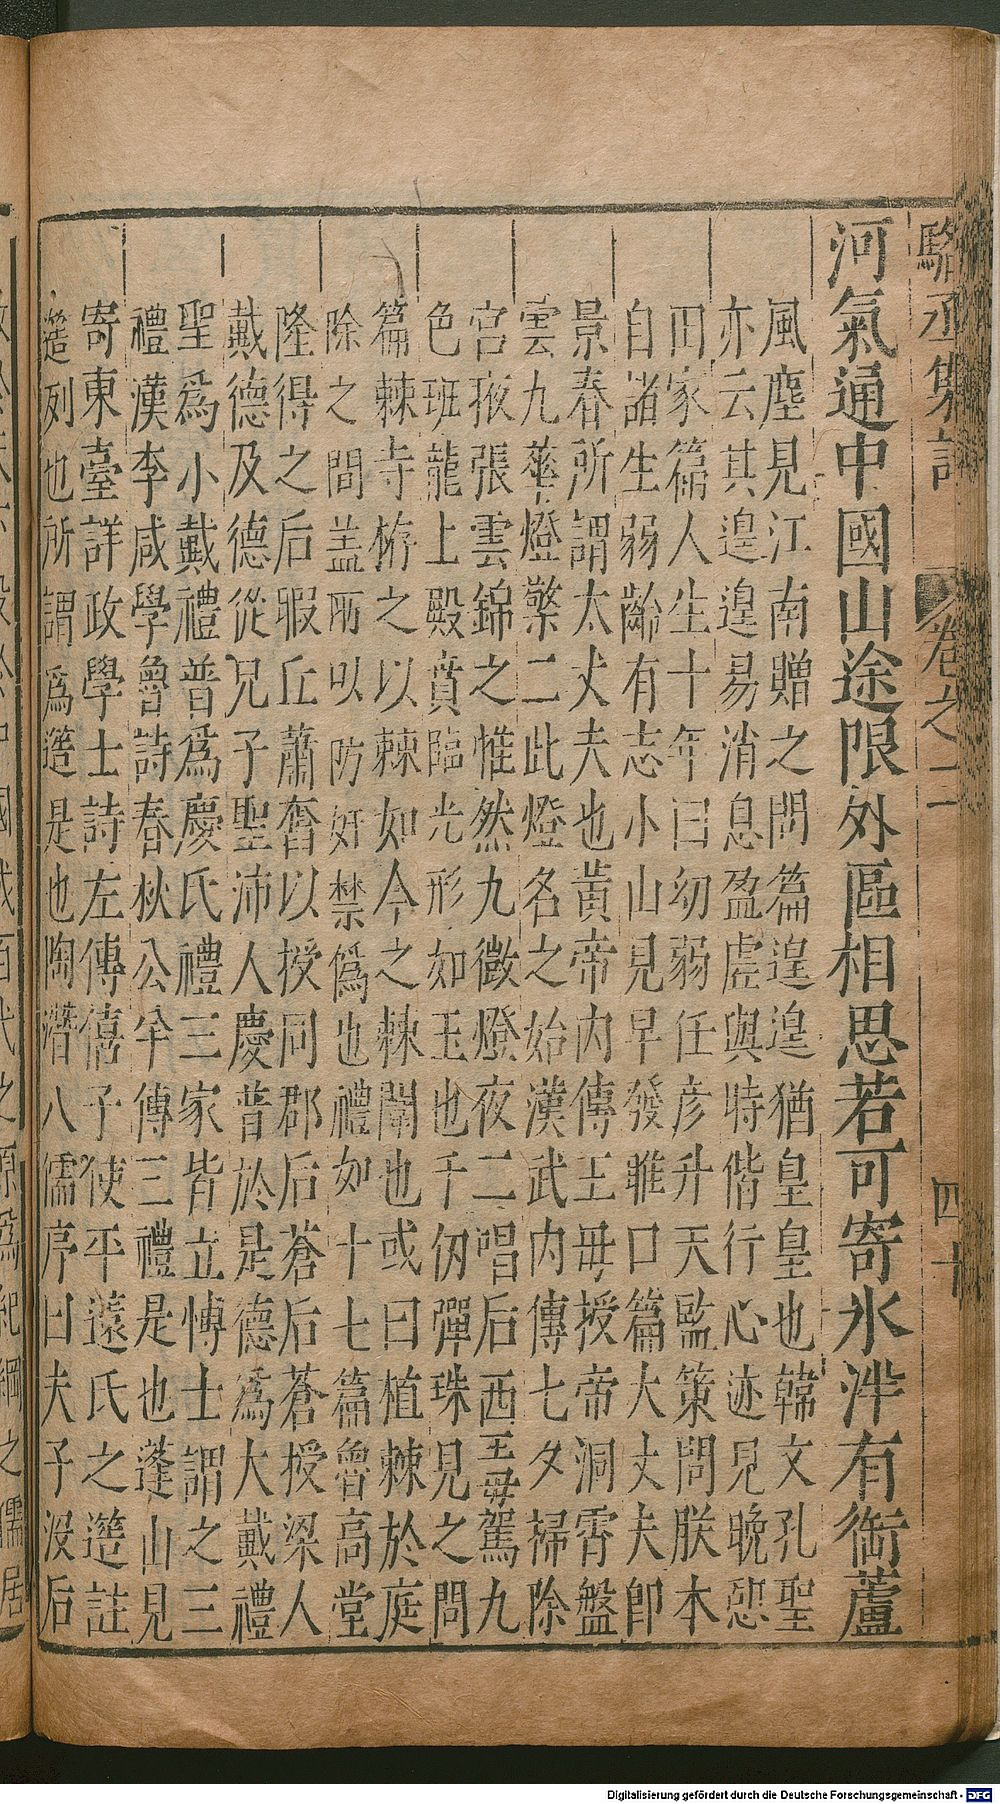 駱丞集註 卷之二 四十
河氣通中國山途限外區相思若可寄氷泮有銜蘆
風塵見江南贈之問篇遑遑猶皇皇也韓文孔聖
亦云其遑遑易消息盈虗與時偕行心迹見晚悊
田家篇人生十年曰幼弱任彦升天監策問朕本
自諸生弱齡有志小山見早發雎口篇大丈夫卽
景春所謂太丈夫也黃帝内傳王母授帝洞霄盤
雲九華燈檠二此燈名之始漢武内傳七夕掃除
宮掖張雲錦之惟然九微燈夜二唱后西王母駕九
色班龍上殿賁臨光形如玉也千仭彈珠見之問
篇棘寺栫之以棘如今之棘闈也或曰植棘於庭
除之間盖所以防奸禁爲也禮如十七篇魯高堂
隆得之后暇丘蕭奮以授同郡后蒼后蒼授梁人
戴德及德從兄子聖沛人慶普於是德爲大戴禮
聖爲小戴禮普爲慶氏禮三家皆立愽士謂之三
禮漢李咸學魯詩春秋公羊傳三禮是也蓬山見
寄東臺詳政學士詩左傳僖子使平薳氏之簉註
簉列也所謂爲簉是也陶潛八儒序曰夫子没后
國
百代之
爲紀綱之儒居
Digitalisierung gefördert durch die Deutsche Forschungsgemeinschaft - DFG